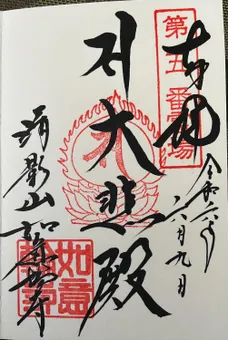 第五番霊場
奉拝
令和六年
六月九日
大悲殿
清影山
如意輪寺
如意輪寺